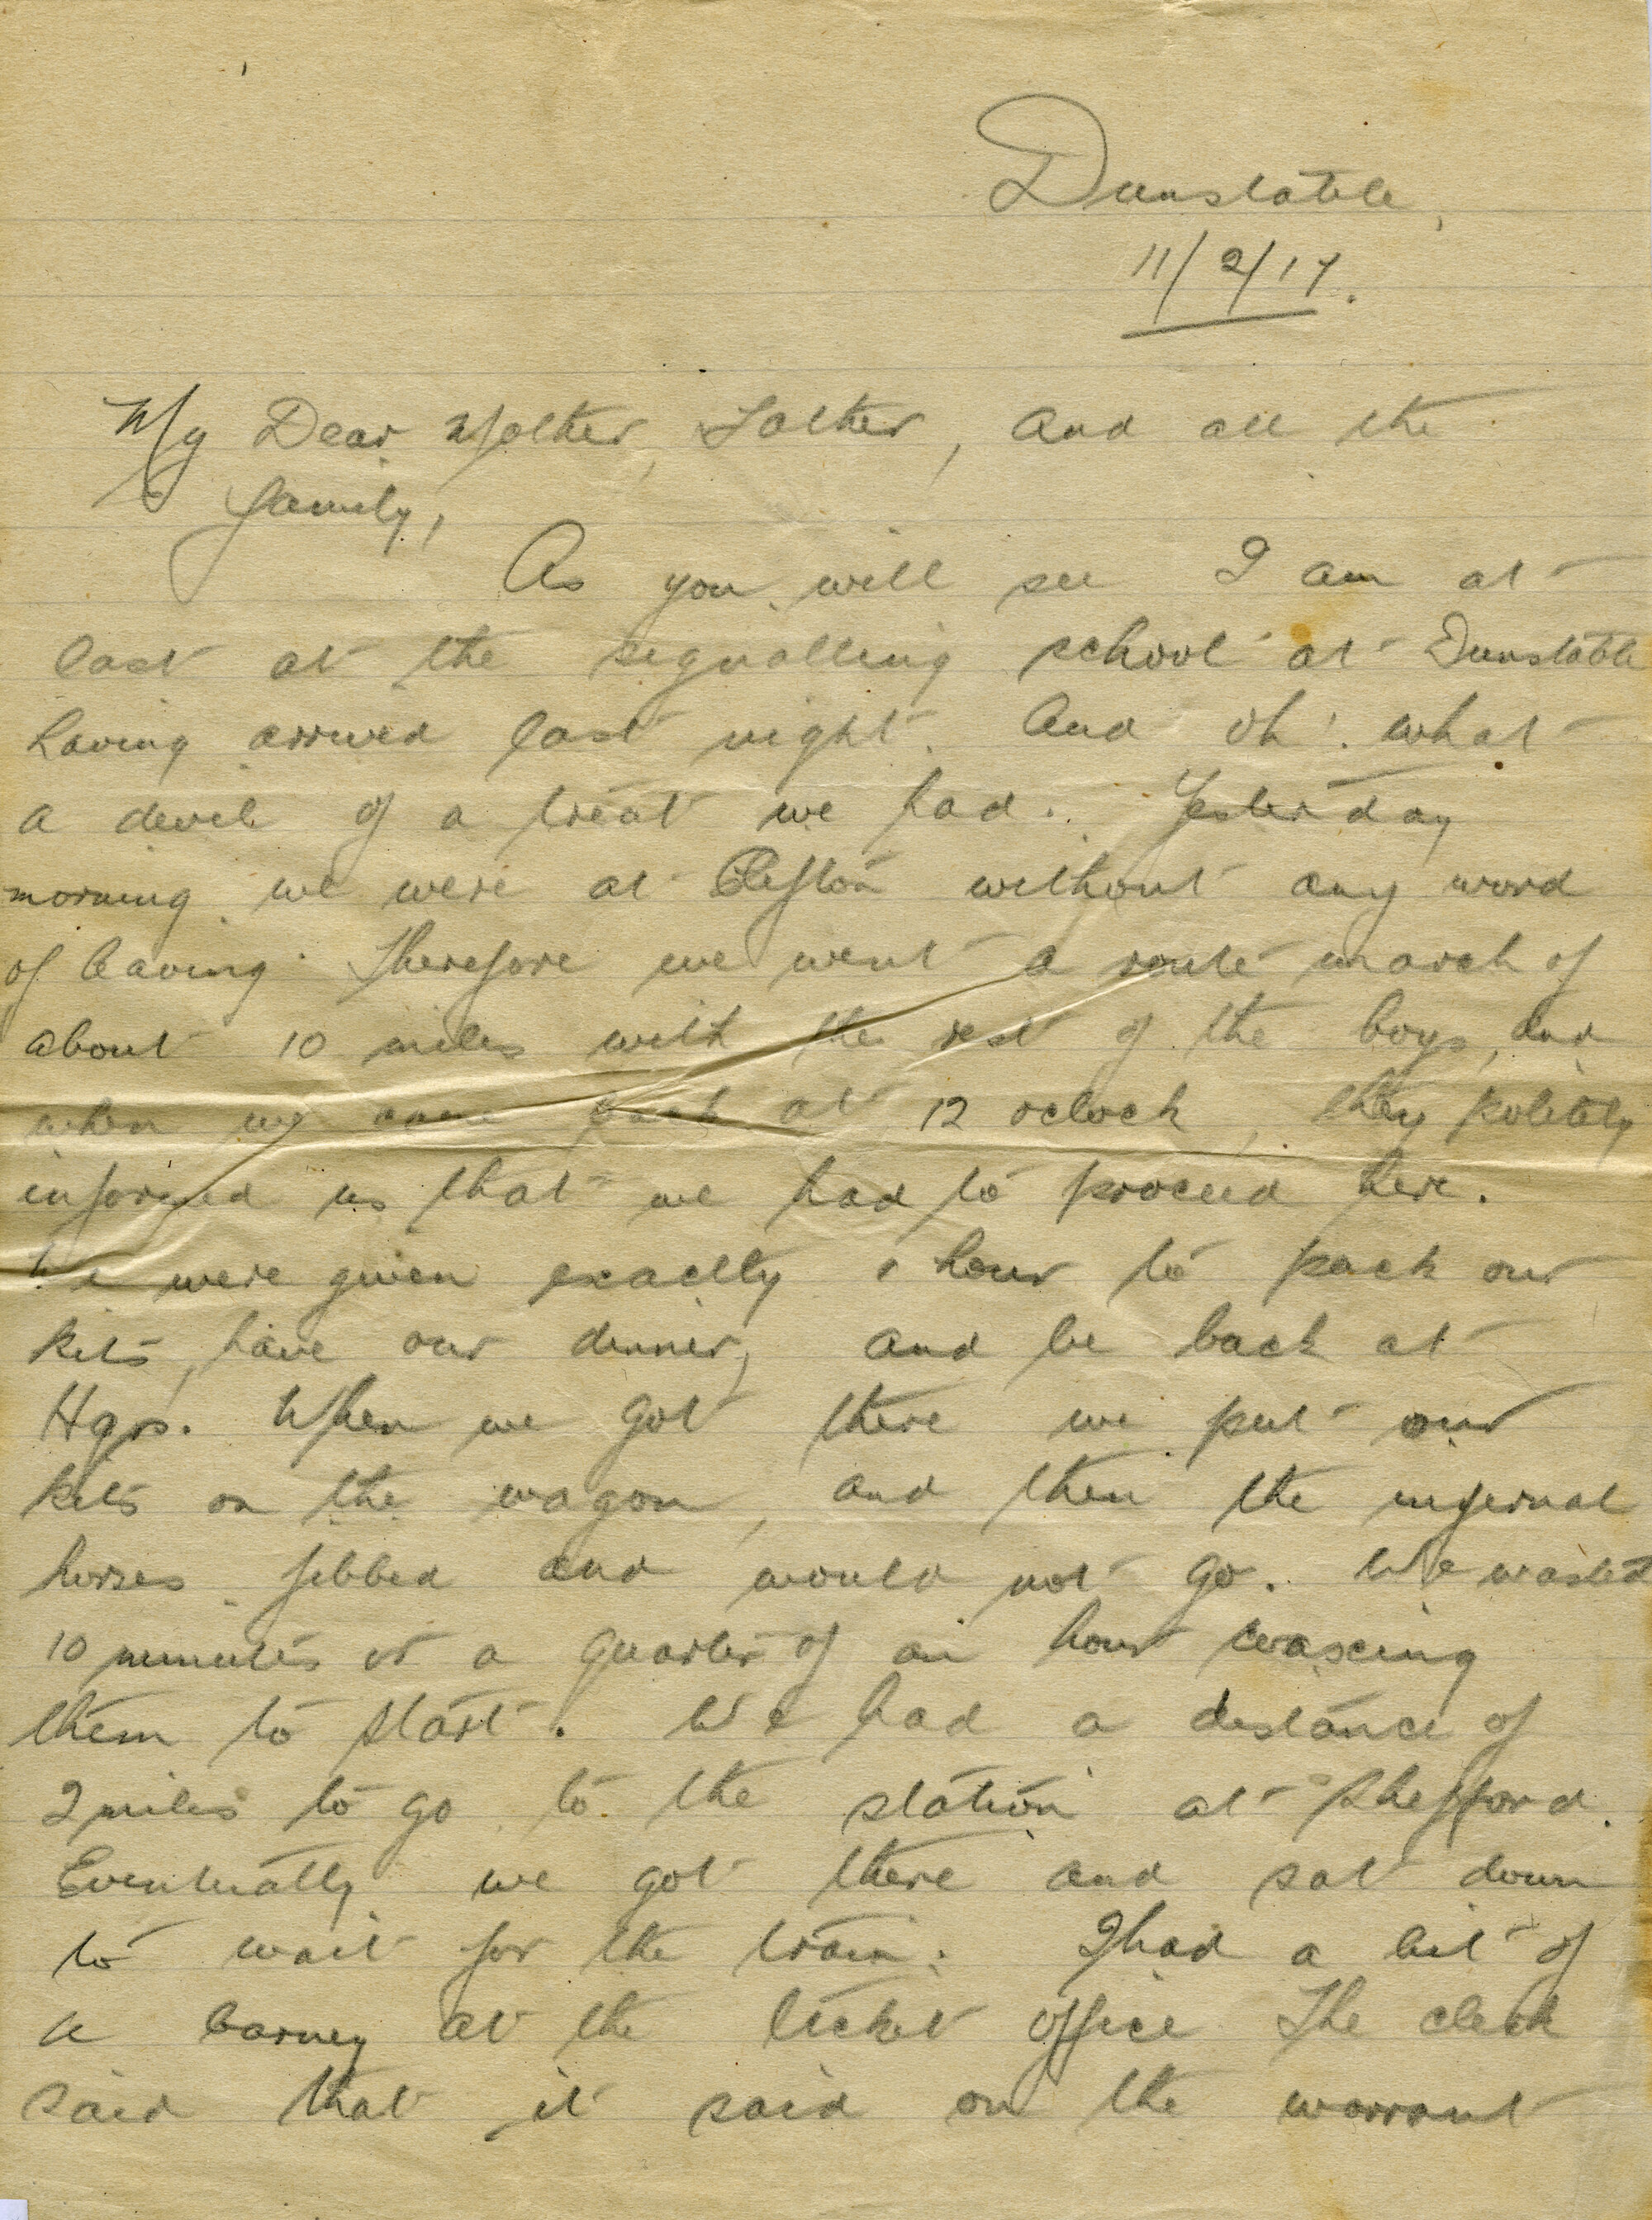 Dunstable,
11/2/17.
My Dear Mother, Father, and all the
family,
As you will see I am at
last at the signalling school at Dunstable
having arrived last night. And oh! what
a devil of a treat we had. Yesterday
morning we were at Clifton without any word
of leaving. Therefore we went a route march of
about 10 miles with the rest of the boys, and
when we came back at 12 oclock, they politely
informed us that we had to proceed here.
We were given exactly 1 hour to pack our
kits, have our dinner, and be back at
Hqrs. When we got there we put our
kits on the wagon, and then the infernal
horses jibbed and would not go. We wasted
10 minutes or a quarter of an hour coaxing
them to start. We had a distance of
2 miles to go to the station at Shefford.
Eventually we got there and sat down
to wait for the train. I had a bit of
a barney at the ticket office. The clerk
said that it said on the warrant